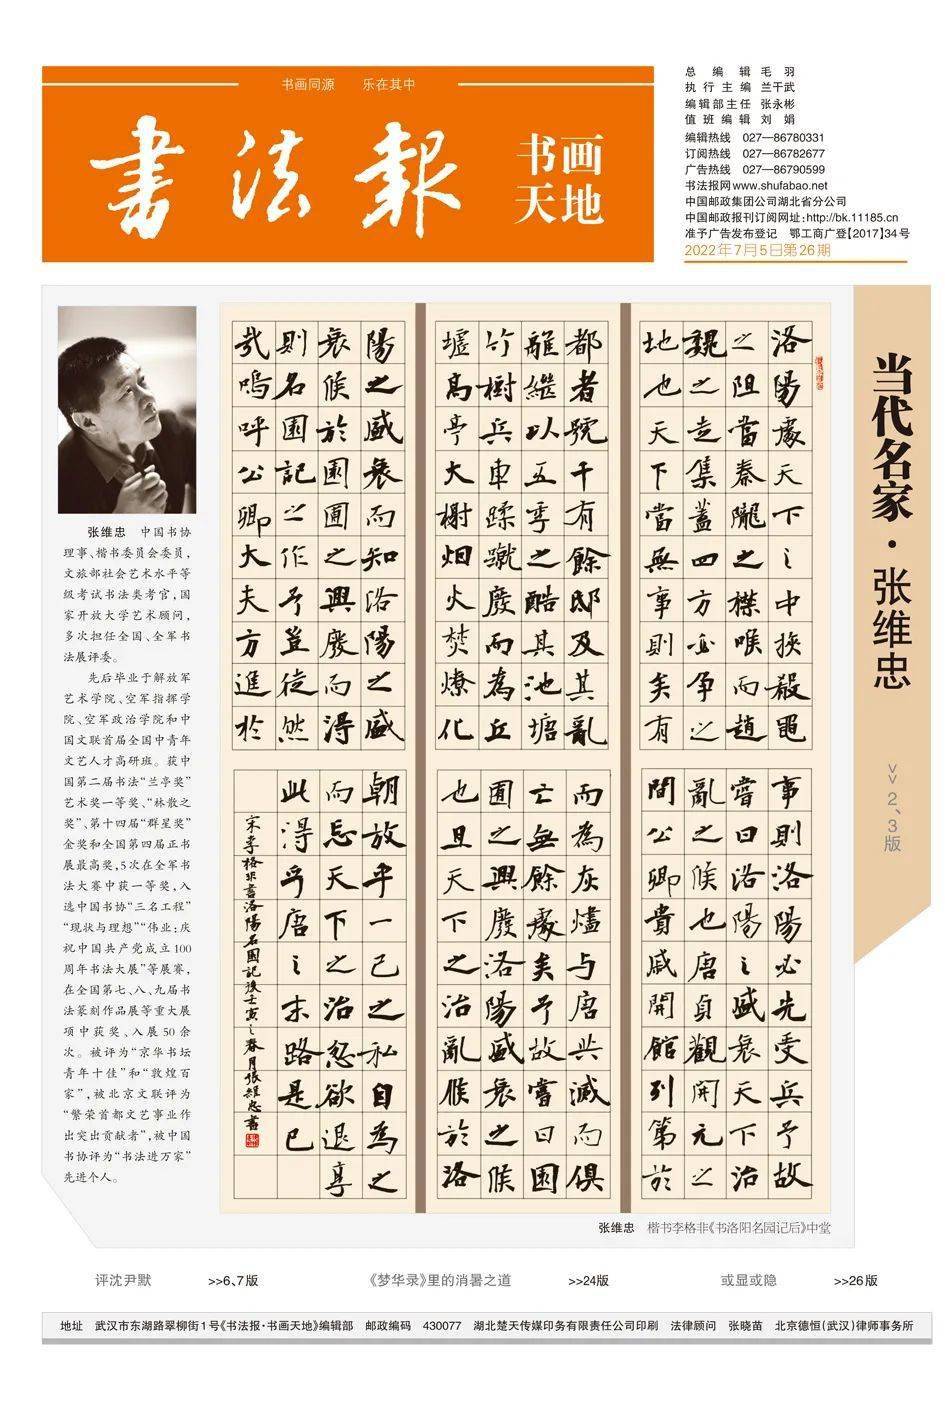 书画同源 乐在其中
書法報
书画
天地
总编辑 毛羽
执行主编 兰干武
编辑部主任 张永彬
值班编辑 刘娟
编辑热线 027—86780331
订阅热线 027—86782677
广告热线 027—86790599
书法报网www.shufabao.net
中国邮政集团公司湖北省分公司
中国邮政报刊订阅网址:http://bk.11185.cn
准予广告发布登记 鄂工商广登【2017】34号
2022年7月5日第26期
当代名家·张维忠
>> 2、3版
洛陽處天下之中挾殽黽
之阻當秦隴之襟喉而趙
魏之走集蓋四方必爭之
地也天下當無事則矣有
事則洛陽必先受兵予故
嘗曰洛陽之盛衰天下治
亂之候也唐貞觀開元之
間公卿貴戚開館列第於
都者號千有餘邸及其亂
離繼以五季之酷其池塘
竹樹兵車蹂蹴廢而為丘
墟高亭大榭烟火焚燎化
而為灰燼与唐共滅而俱
亡無餘處矣予故嘗曰園
囿之興廢洛陽盛衰之候
也且天下之治亂候於洛
陽之盛衰而知洛陽之盛
衰候於園囿之興廢而得
則名園記之作予豈徒然
哉嗚呼公卿大夫方進於
朝放乎一己之私自為之
而忘天下之治忽欲退享
此得乎唐之末路是已
宋李格非書洛陽名園記後壬寅之春月張維忠書
张维忠 中国书协
理事、楷书委员会委员,
文旅部社会艺术水平等
级考试书法类考官,国
家开放大学艺术顾问,
多次担任全国、全军书
法展评委。
先后毕业于解放军
艺术学院、空军指挥学
院、空军政治学院和中
国文联首届全国中青年
文艺人才高研班。获中
国第二届书法“兰亭奖”
艺术奖一等奖、“林散之
奖”、第十四届“群星奖”
金奖和全国第四届正书
展最高奖,5次在全军书
法大赛中获一等奖,入
选中国书协“三名工程”
“现状与理想”“伟业:庆
祝中国共产党成立100
周年书法大展”等展赛,
在全国第七、八、九届书
法篆刻作品展等重大展
项中获奖、入展50余
次。被评为“京华书坛
青年十佳”和“敦煌百
家”,被北京文联评为
“繁荣首都文艺事业作
出突出贡献者”,被中国
书协评为“书法进万家”
先进个人。
张维忠 楷书李格非《书洛阳名园记后》中堂
评沈尹默 >>6、7版
《梦华录》里的消暑之道 >>24版
或显或隐 >>26版
地址 武汉市东湖路翠柳街1号《书法报·书画天地》编辑部 邮政编码 430077 湖北楚天传媒印务有限责任公司印刷 法律顾问 张晓苗 北京德恒(武汉)律师事务所